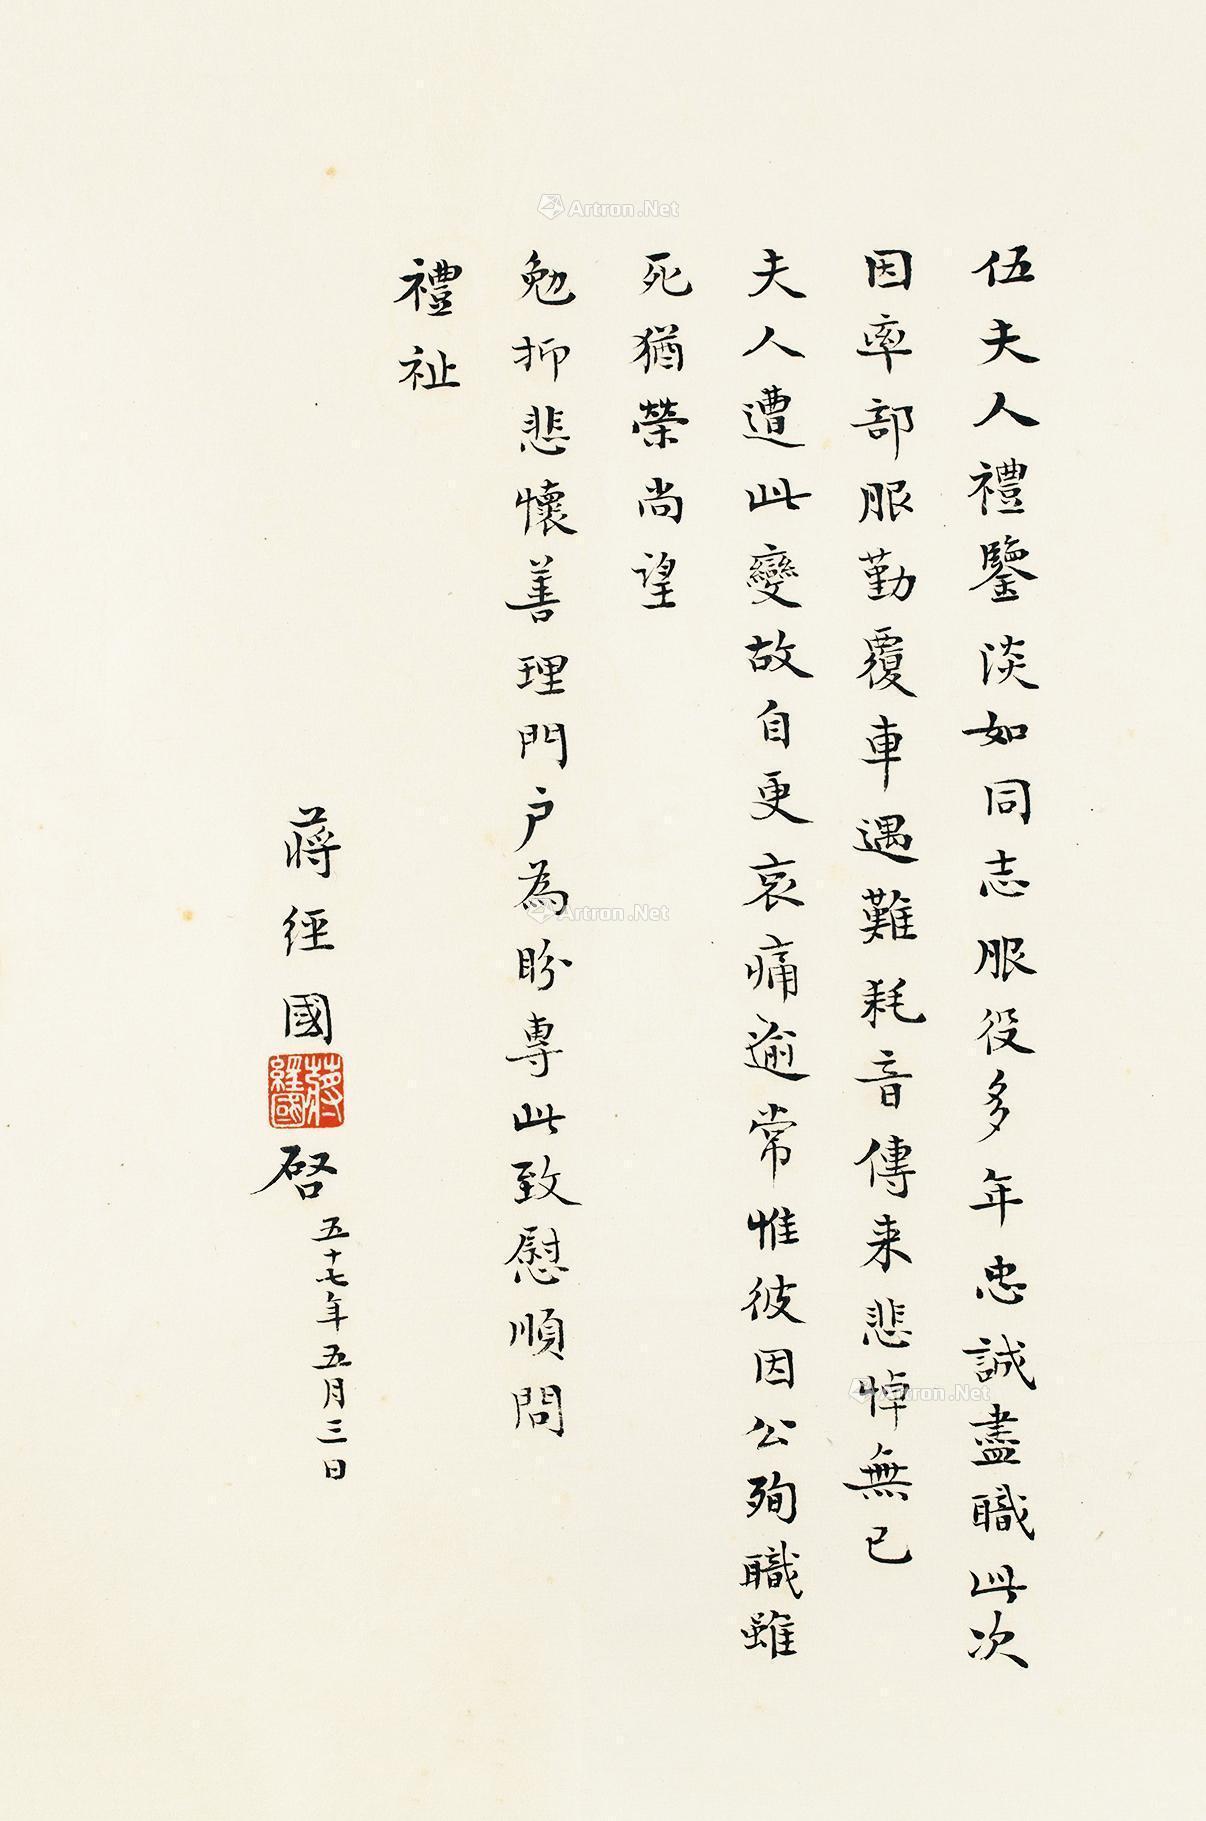 伍夫人禮鑒淡如同志服役多年忠誠盡職此次
因率部服勤覆車遇難耗音傳来悲悼無已
夫人遭此變故自更哀痛逾常惟彼因公殉職雖
死猶榮尚望
勉抑悲懷善理門户為盼專此致慰順問
禮祉
蔣經國
蔣經國
啓
五十七年五月三日
Artron.Net
Artron.Net
Artron.Net